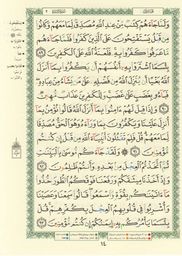 وَلَمَّا جَآءَهُمْ كِتَٰبٌ مِّنْ عِندِ ٱللَّهِ مُصَدِّقٌ لِّمَا مَعَهُمْ وَكَانُوا۟
مِن قَبْلُ يَسْتَفْتِحُونَ عَلَى ٱلَّذِينَ كَفَرُوا۟ فَلَمَّا جَآءَهُم
مَّا عَرَفُوا۟ كَفَرُوا۟ بِهِۦ فَلَعْنَةُ ٱللَّهِ عَلَى ٱلْكَٰفِرِينَ ٨٩
بِئْسَمَا ٱشْتَرَوْا۟ بِهِۦٓ أَنفُسَهُمْ أَن يَكْفُرُوا۟ بِمَآ أَنزَلَ
ٱللَّهُ بَغْيًا أَن يُنَزِّلَ ٱللَّهُ مِن فَضْلِهِۦ عَلَىٰ مَن يَشَآءُ مِنْ عِبَادِهِۦ
فَبَآءُو بِغَضَبٍ عَلَىٰ غَضَبٍ وَلِلْكَٰفِرِينَ عَذَابٌ مُّهِينٌ ٩٠
وَإِذَا قِيلَ لَهُمْ ءَامِنُوا۟ بِمَآ أَنزَلَ ٱللَّهُ قَالُوا۟ نُؤْمِنُ بِمَآ
أُنزِلَ عَلَيْنَا وَيَكْفُرُونَ بِمَا وَرَآءَهُۥ وَهُوَ ٱلْحَقُّ مُصَدِّقًا
لِّمَا مَعَهُمْ قُلْ فَلِمَ تَقْتُلُونَ أَنۢبِيَآءَ ٱللَّهِ مِن قَبْلُ إِن كُنتُم
مُّؤْمِنِينَ ٩١ وَلَقَدْ جَآءَكُم مُّوسَىٰ بِٱلْبَيِّنَٰتِ
ثُمَّ ٱتَّخَذْتُمُ ٱلْعِجْلَ مِنۢ بَعْدِهِۦ وَأَنتُمْ ظَٰلِمُونَ ٩٢
وَإِذْ أَخَذْنَا مِيثَٰقَكُمْ وَرَفَعْنَا فَوْقَكُمُ ٱلطُّورَ خُذُوا۟
مَآ ءَاتَيْنَٰكُم بِقُوَّةٍ وَٱسْمَعُوا۟ قَالُوا۟ سَمِعْنَا وَعَصَيْنَا
وَأُشْرِبُوا۟ فِى قُلُوبِهِمُ ٱلْعِجْلَ بِكُفْرِهِمْ قُلْ
بِئْسَمَا يَأْمُرُكُم بِهِۦٓ إِيمَٰنُكُمْ إِن كُنتُم مُّؤْمِنِينَ ٩٣
١٤